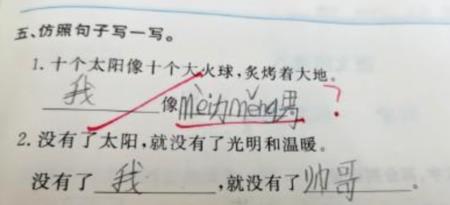 五、仿照句子写一写。
1. 十个太阳像十个大火球，炙烤着大地。
我 像 mèi力měng男 ?
2. 没有了太阳，就没有了光明和温暖。
没有了 我 ，就没有了 帅哥 。